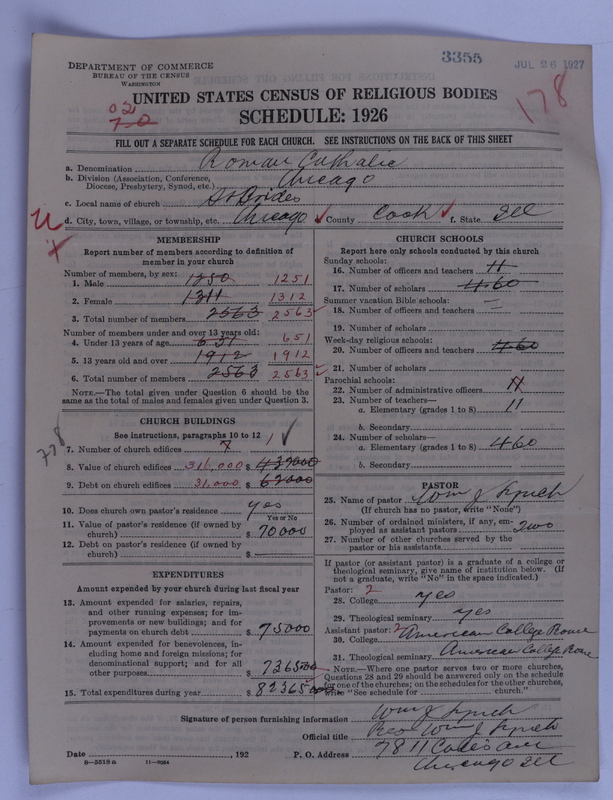 3355
JUL 26 1927
DEPARTMENT OF COMMERCE
BUREAU OF THE CENSUS
WASHINGTON
178
02
7-2
UNITED STATES CENSUS OF RELIGIOUS BODIES
SCHEDULE: 1926
FILL OUT A SEPARATE SCHEDULE FOR EACH CHURCH. SEE INSTRUCTIONS ON THE BACK OF THIS SHEET
a. Denomination Roman Catholic
b. Division (Association, Conference, Diocese, Presbytery, Synod, etc.) Chicago
c. Local name of church St Brides
d. City, town, village, or township, etc. Chicago County Cook f. State Ill
MEMBERSHIP
Report number of members according to definition of
member in your church
Number of members, by sex:
1. Male 1250 1251
2. Female 1311 1312
3. Total number of members 2563 2563
Number of members under and over 13 years old:
4. Under 13 years of age 651 651
5. 13 years old and over 1912 1912
6. Total number of members 2563 2563
NOTE.—The total given under Question 6 should be
same as the total of males and females given under Question 3.
CHURCH BUILDINGS
See instructions, paragraphs 10 to 12
778
7. Number of church edifices 1
8. Value of church edifices 311,000 $
9. Debt on church edifices 31,000 $ 62000
10. Does church own pastor's residence? yes
Yes or No
11. Value of pastor's residence (if owned by
church) $ 70000
12. Debt on pastor's residence (if owned by
church) $
EXPENDITURES
Amount expended by your church during last fiscal year
13. Amount expended for salaries, repairs,
and other running expenses; for im-
provements or new buildings; and for
payments on church debt $ 75000
14. Amount expended for benevolences, in-
cluding home and foreign missions; for
denominational support; and for all
other purposes $ 736500
15. Total expenditures during year $ 82365
CHURCH SCHOOLS
Report here only schools conducted by this church
Sunday schools:
16. Number of officers and teachers 11
17. Number of scholars 460
Summer vacation Bible schools:
18. Number of officers and teachers —
19. Number of scholars
Week-day religious schools:
20. Number of officers and teachers 460
21. Number of scholars
Parochial schools:
22. Number of administrative officers
23. Number of teachers—
a. Elementary (grades 1 to 8) 11
b. Secondary
24. Number of scholars—
a. Elementary (grades 1 to 8) 460
b. Secondary
PASTOR
25. Name of pastor Wm J Lynch
(If church has no pastor, write "None")
26. Number of ordained ministers, if any, em-
ployed as assistant pastors two
27. Number of other churches served by the
pastor or his assistants
If pastor (or assistant pastor) is a graduate of a college or
theological seminary, give name of institution below. (If
not a graduate, write "No" in the space indicated.)
Pastor: 2
28. College yes
29. Theological seminary yes
Assistant pastor: 2
30. College American College Rome
31. Theological seminary American College Rome
NOTE.—Where one pastor serves two or more churches,
Questions 28 and 29 should be answered only on the schedule
for one of the churches; on the schedules for the other churches,
write "See schedule for church."
Signature of person furnishing information Wm J Lynch
Official title Rev Wm J Lynch
Date , 192 P. O. Address 7811 Coles ave
8-5518a 11-9064 Chicago Ill